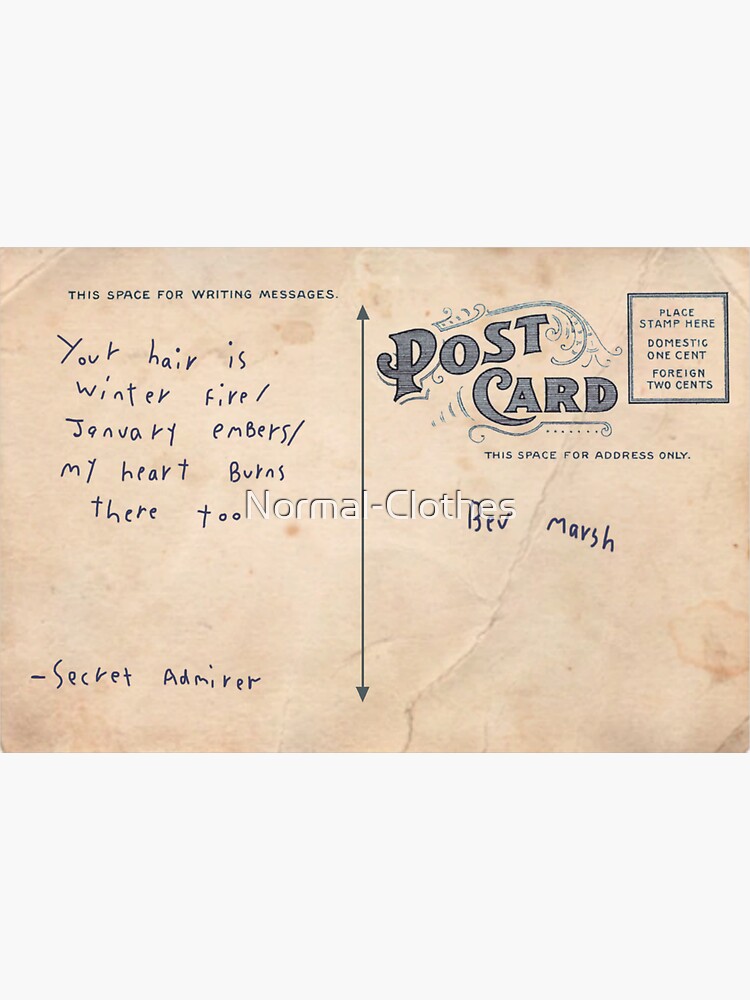 THIS SPACE FOR WRITING MESSAGES.
Your hair is
winter fire/
January embers/
my heart Burns
there too
-Secret Admirer
POST
CARD
PLACE
STAMP HERE
DOMESTIC
ONE CENT
FOREIGN
TWO CENTS
THIS SPACE FOR ADDRESS ONLY.
Bev Marsh
Normal-Clothes